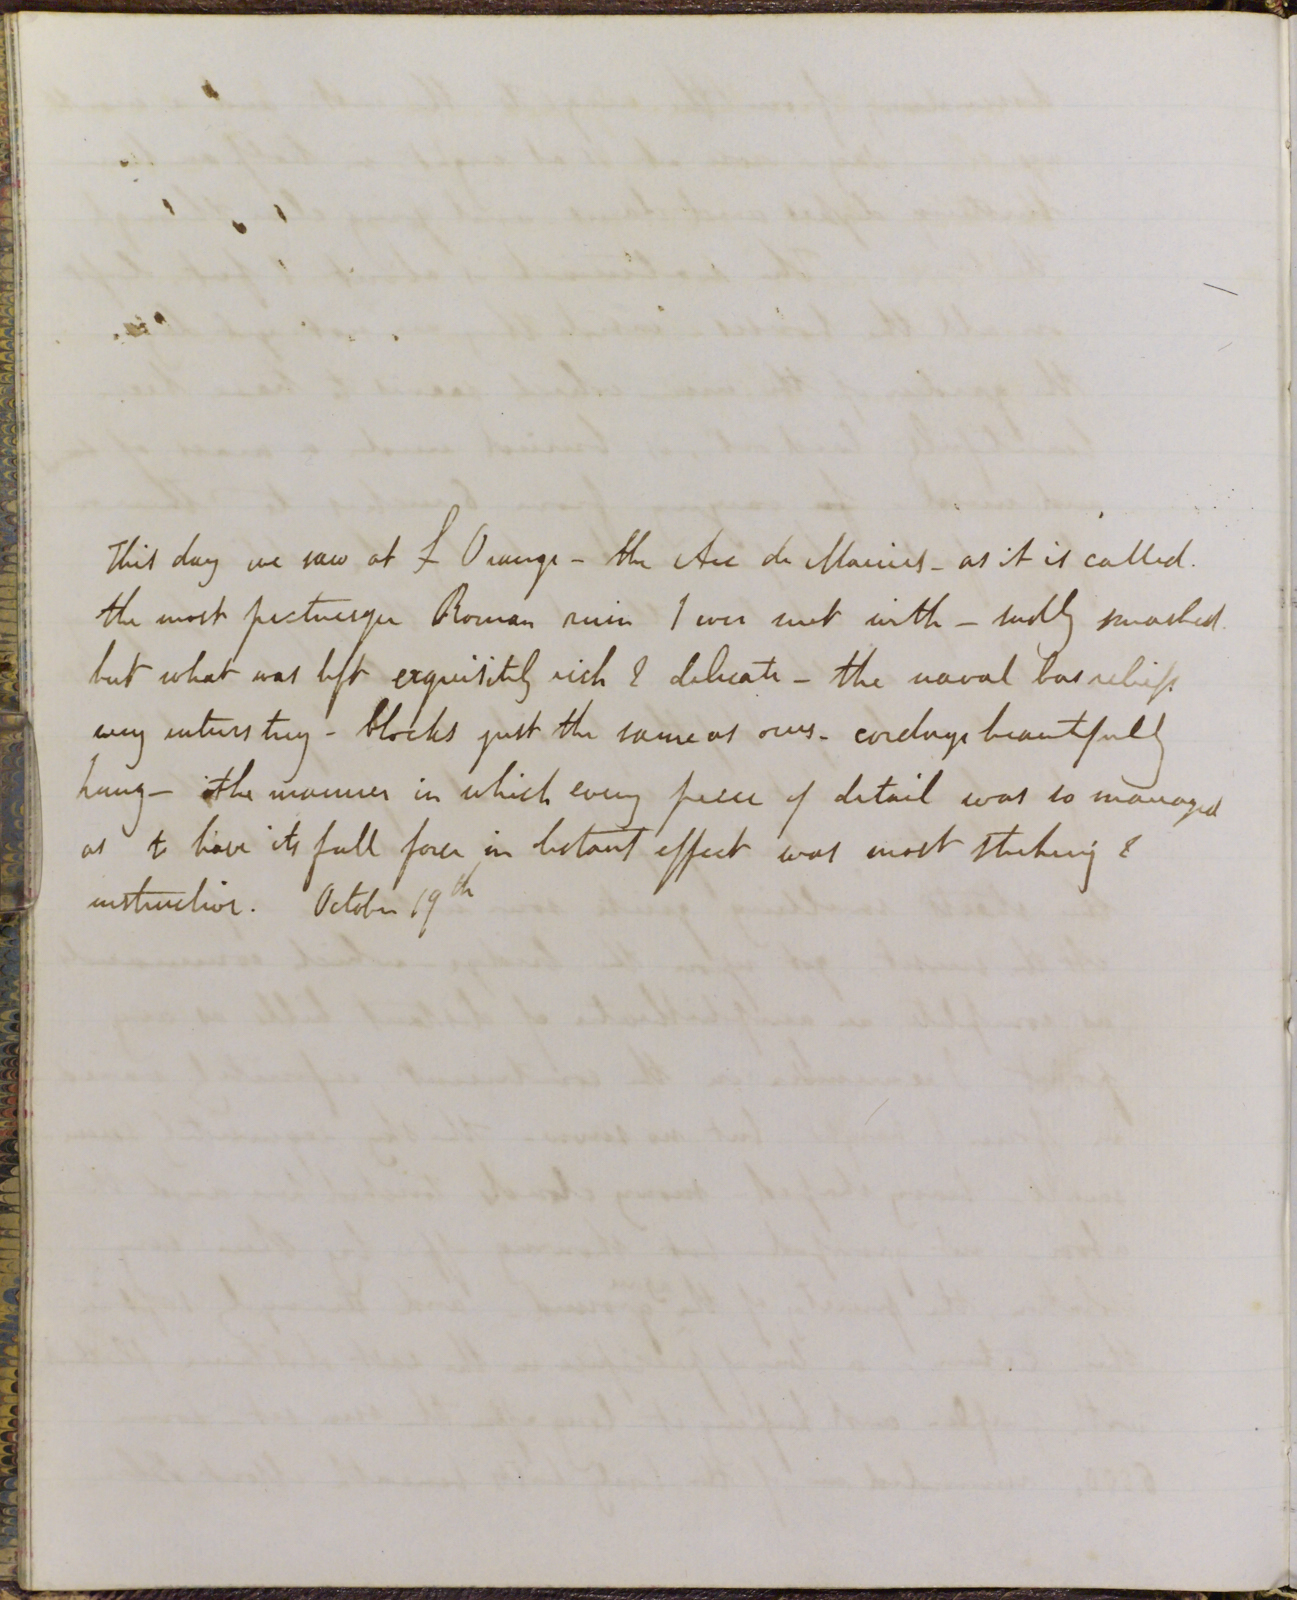 This day we saw at Orange - the Arc de Marius - as it is called.
the most picturesque Roman ruin I ever met with - sadly smashed.
but what was left exquisitely rich & delicate - the naval bas reliefs
very interesting - blocks just the same as ours - cordage beautifully
hung - the manner in which every piece of detail was so managed
as to have its full force in distant effect was most striking &
instructive. October 19th